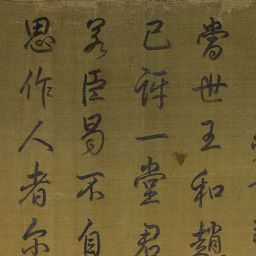 當世王和趙
已訝一堂君
若臣曷不自
思作人者尔